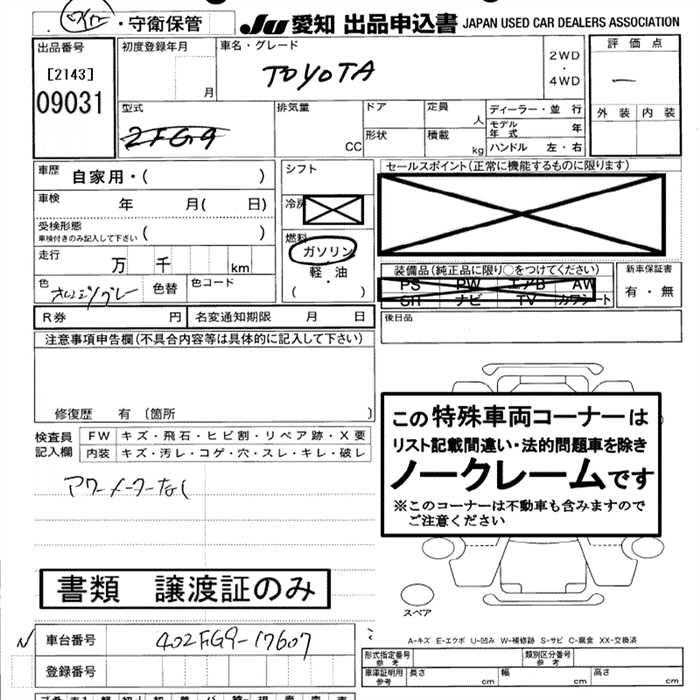 ・守衛保管
JU 愛知 出品申込書 JAPAN USED CAR DEALERS ASSOCIATION
出品番号
[2143]
09031
初度登録年月
月
車名・グレード
TOYOTA
2WD
・
4WD
評価点
ー
外装 内装
型式
2FG9
排気量
CC
ドア
形状
定員
人
積載
kg
ディーラー・並行
モデル年式 年
ハンドル 左・右
車歴 自家用・( )
車検 年 月( 日)
受検形態
車検付きのみ記入して下さい ( )
走行 万 千 km
色 オレンジ/グレー 色替 色コード
シフト
冷房
燃料
ガソリン
軽・油
( )
セールスポイント(正常に機能するものに限ります)
装備品(純正品に限り○をつけてください)
PS PW エアB AW
SR ナビ TV カワシート
新車保証書
有・無
R券 円 名変通知期限 月 日
後日品
注意事項申告欄(不具合内容等は具体的に記入して下さい)
修復歴 有 〔箇所 〕
検査員
記入欄
FW キズ・飛石・ヒビ割・リペア跡・X要
内装 キズ・汚レ・コゲ・穴・スレ・キレ・破レ
アワーメーターなし
この特殊車両コーナーは
リスト記載間違い・法的問題車を除き
ノークレームです
※このコーナーは不動車も含みますので
ご注意ください
書類 譲渡証のみ
スペア
A-キズ E-エクボ U-凹み W-補修跡 S-サビ C-腐食 XX-交換済
車台番号 402FG9-17607
登録番号
型式指定番号
参考
類別区分番号
参考
車庫証明用
参考
長さ cm 幅 cm 高さ cm